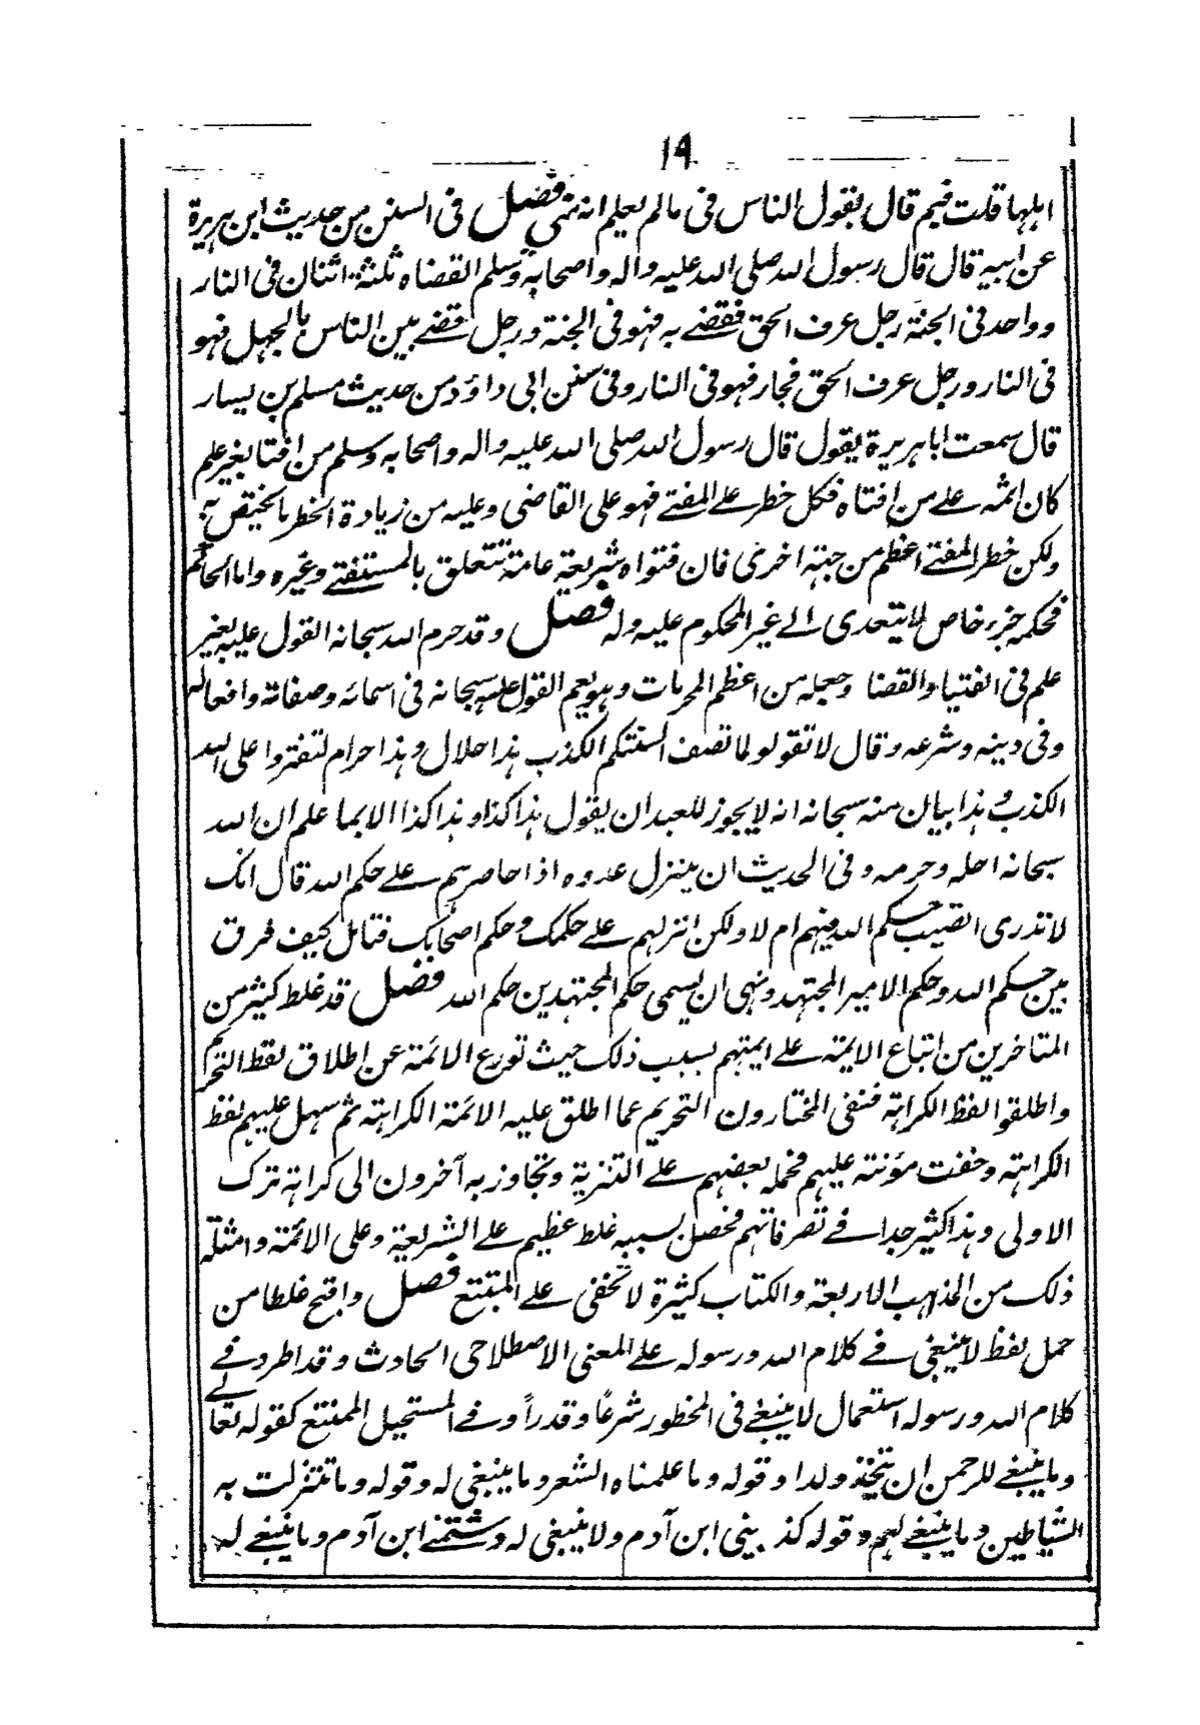 ١٩
اہلہا قلت فبم قال بقول الناس فی مالم یعلم انہ نہی فصل فی السنن من حدیث ابن بریرۃ
عن ابیہ قال قال رسول اللہ صلی اللہ علیہ والہ واصحابہ وسلم القضاہ ثلثۃ اثنان فی النار
وواحد فی الجنۃ رجل عرف الحق فقضے بہ فہو فی الجنۃ ورجل قضے بین الناس بالجہل فہو
فی النار ورجل عرف الحق فجار فہو فی النار وفی سنن ابی داؤد من حدیث مسلم بن یسار
قال سمعت اباہریرۃ یقول قال رسول اللہ صلی اللہ علیہ والہ واصحابہ وسلم من افتا بغیر علم
کان اثمہ علے من افتاہ فکل خطر علے المفتے فہو علی القاضی وعلیہ من زیادۃ الخطر ما یختص بہ
ولکن خطر المفتے اعظم من جہتہ اخری فان فتواہ شریعۃ عامۃ تتعلق بالمستفتے وغیرہ واما الحاکم
فحکمہ جزء خاص لا یتعدی الے غیر المحکوم علیہ ولہ فصل وقد حرم اللہ سبحانہ القول علیہ بغیر
علم فی الفتیا والقضا وجعلہ من اعظم المحرمات وہو یعم القول علیہ سبحانہ فی اسمائہ وصفاتہ وافعالہ
وفی دینہ وشرعہ وقال لا تقولو لما تصف السنتکم الکذب ہذا حلال وہذا حرام لتفتروا علی اللہ
الکذب وہذا بیان منہ سبحانہ انہ لا یجوز للعبد ان یقول ہذا کذا وہذا کذا الا بما علم ان اللہ
سبحانہ احلہ وحرمہ وفی الحدیث ان ینزل عدوہ اذا حاصرہم علے حکم اللہ قال انک
لا تدری اتصیب حکم اللہ فیہم ام لا ولکن انزلہم علے حکمک وحکم اصحابک فتامل کیف فرق
بین حکم اللہ وحکم الامیر المجتہد ونہی ان یسمی حکم المجتہدین حکم اللہ فصل قد غلط کثیر من
المتاخرین من اتباع الایمۃ علے ایمتہم بسبب ذلک حیث تورع الائمۃ عن اطلاق لفظ التحریم
واطلقوا لفظ الکراہتہ فنفی المختارون التحریم عما اطلق علیہ الائمۃ الکراہتہ ثم سہل علیہم لفظ
الکراہتہ وخفت مؤنتہ علیہم فحملہ بعضہم علے التنزیہ وتجاوز بہ آخرون الی کراہتہ ترک
الاولی وہذا کثیر جدا فے تصرفاتہم فحصل بسببہ غلط عظیم علے الشریعۃ وعلی الائمۃ وامثلۃ
ذلک من المذاہب الاربعۃ والکتاب کثیرۃ لا تخفی علے المتتبع فصل واقبح غلطا من
حمل لفظ لا ینبغی فے کلام اللہ ورسولہ علے المعنی الاصطلاحی الحادث وقد اطرد فے
کلام اللہ ورسولہ استعمال لا ینبغے فی المحظور شرعاً وقدراً وفے المستحیل الممتنع کقولہ تعالے
وما ینبغے للرحمن ان یتخذ ولدا وقولہ وما علمناہ الشعر وما ینبغی لہ وقولہ وما تنزلت بہ
الشیاطین وما ینبغے لہم وقولہ کذبینی ابن آدم ولا ینبغی لہ وشتمنے ابن آدم وما ینبغے لہ